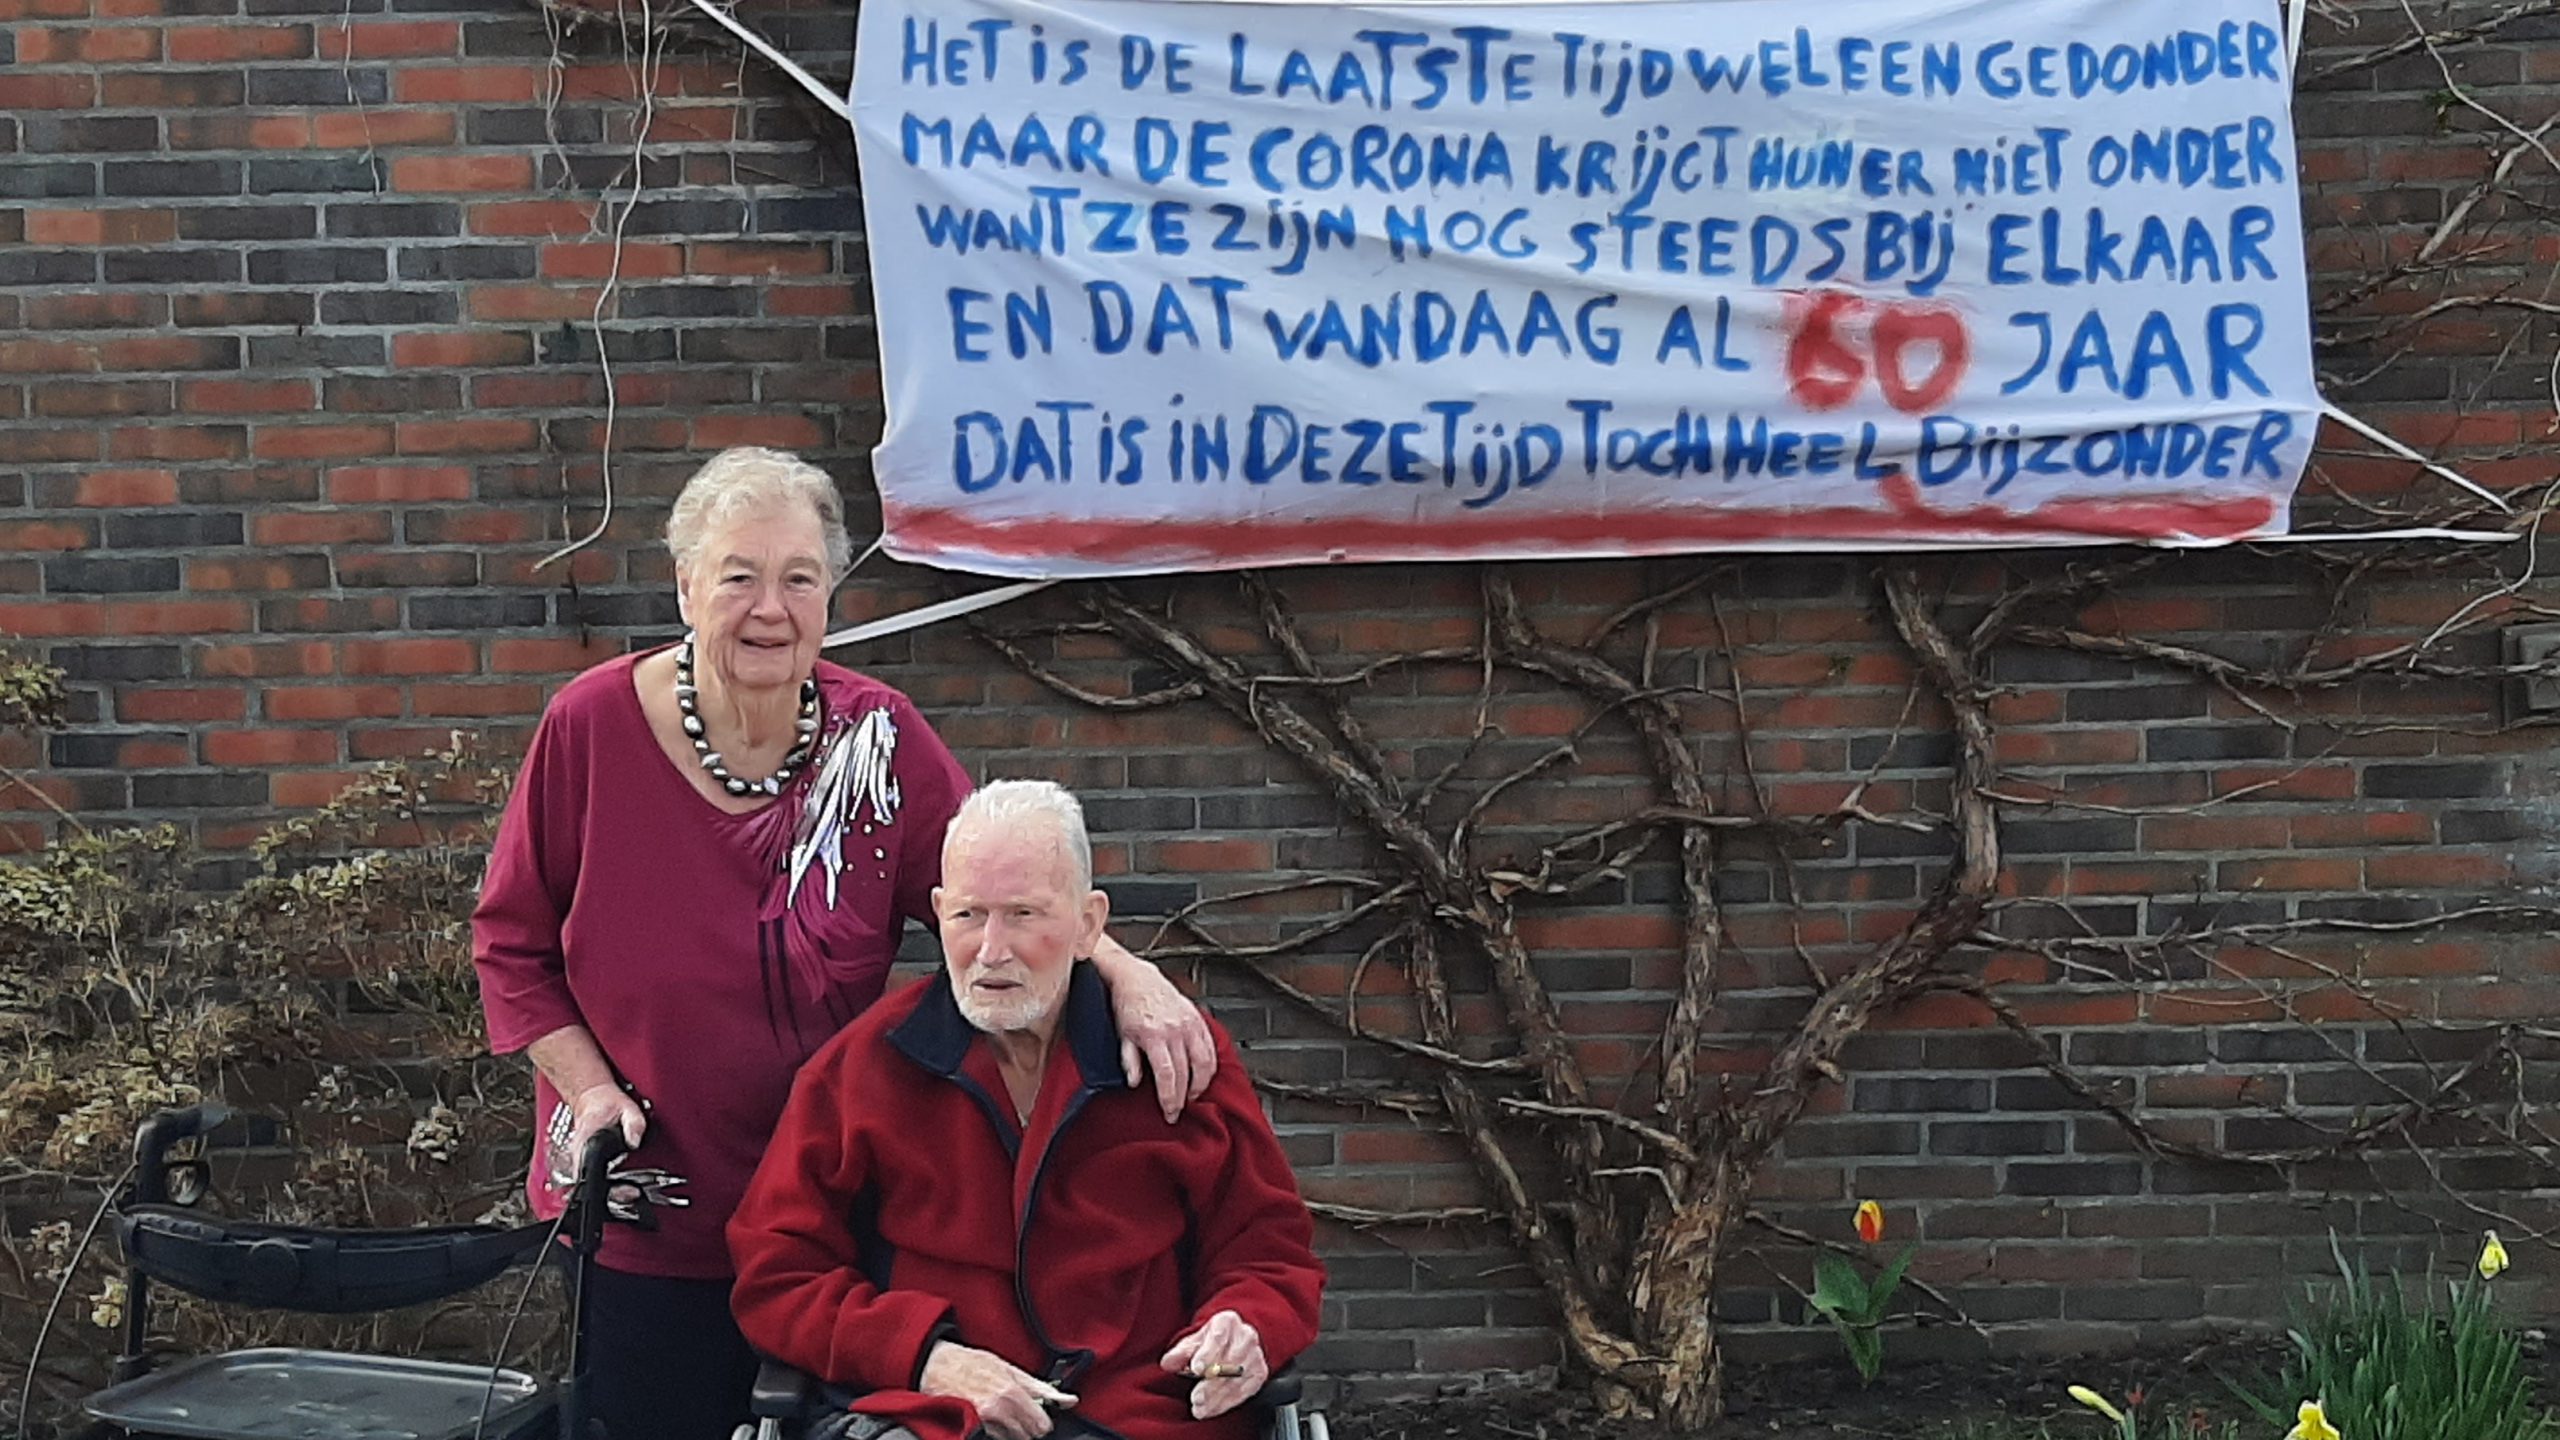 HET IS DE LAATSTE TIJD WEL EEN GEDONDER
MAAR DE CORONA KRIJGT HUN ER NIET ONDER
WANT ZE ZIJN NOG STEEDS BIJ ELKAAR
EN DAT VANDAAG AL 60 JAAR
DAT IS IN DEZE TIJD TOCH HEEL BIJZONDER